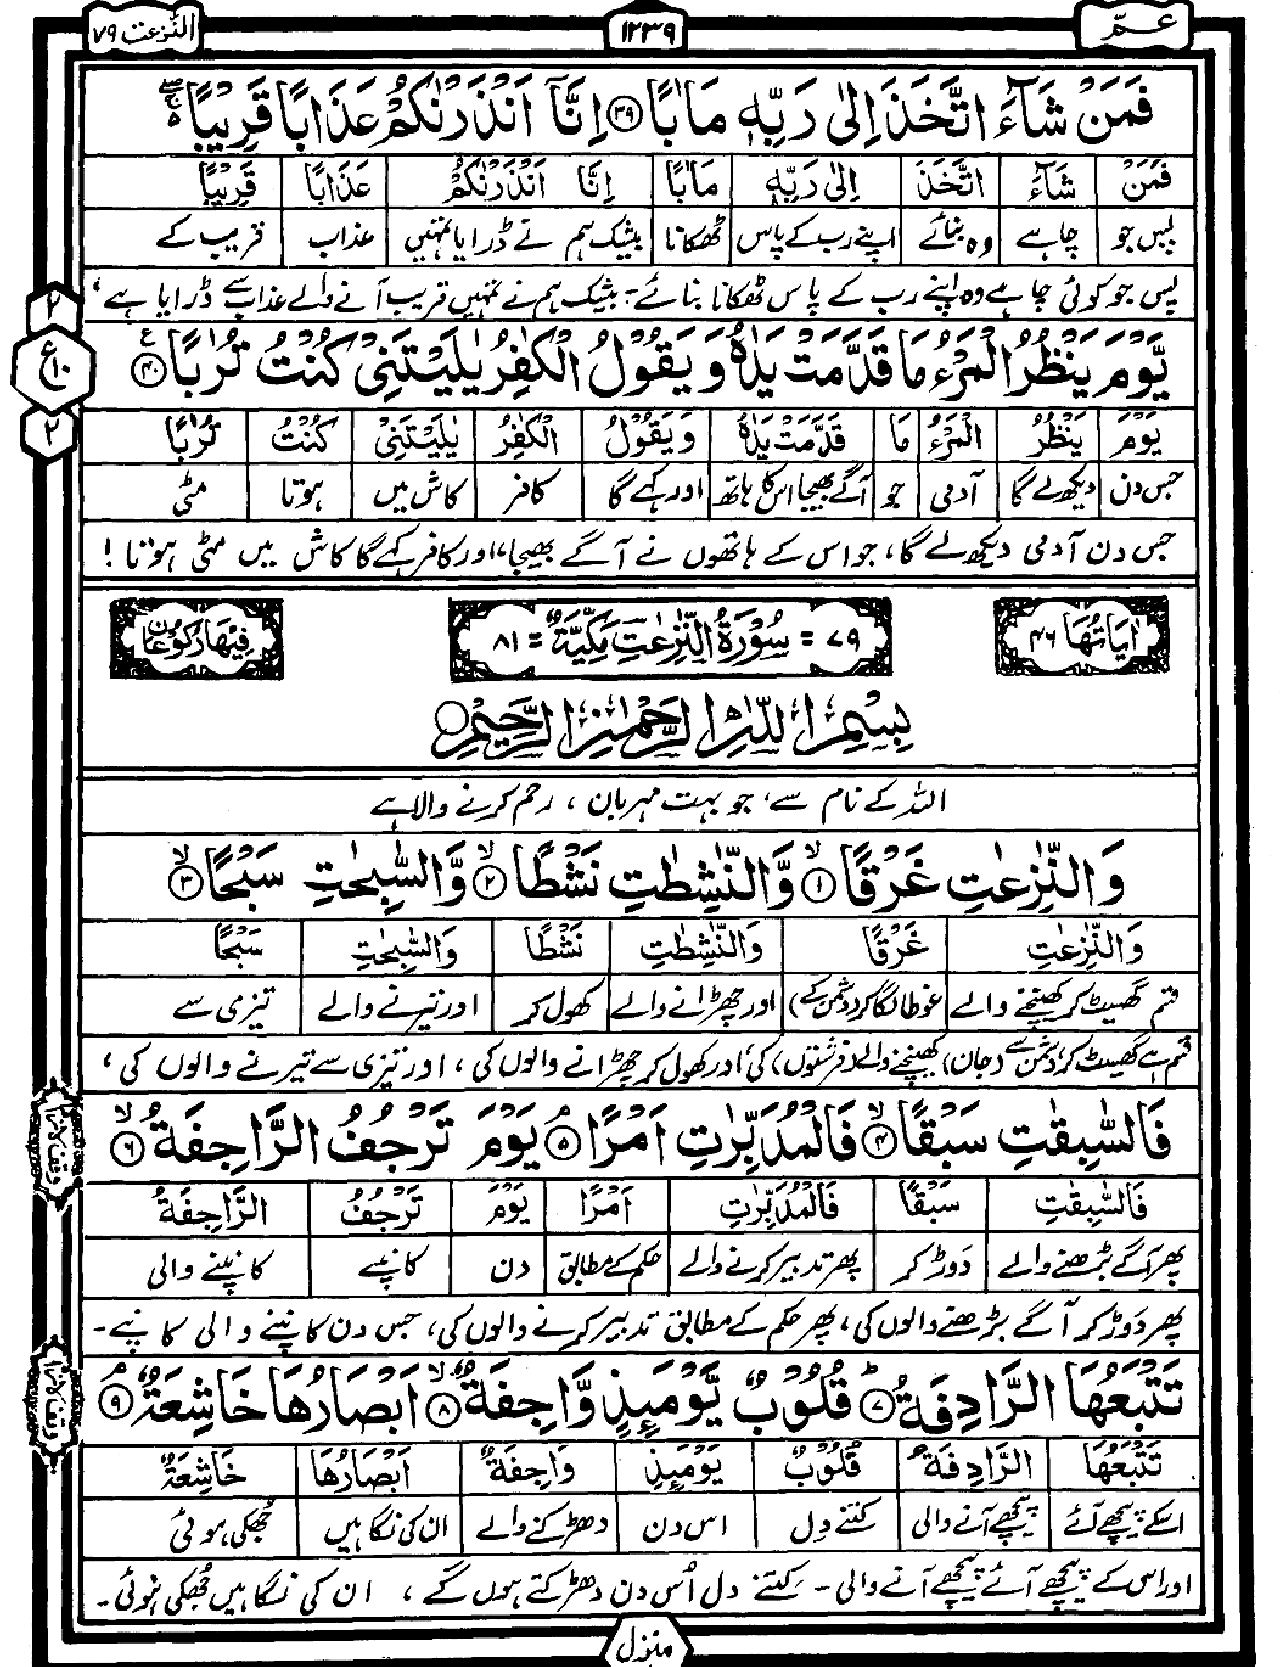 عـمّ ١٢٣٩ النّٰزعٰت ٧٩
فَمَنْ شَآءَ اتَّخَذَ اِلٰى رَبِّهٖ مَاٰبًا ﴿٣٩﴾ اِنَّاۤ اَنْذَرْنٰكُمْ عَذَابًا قَرِيْبًا
فَمَنْ شَآءَ اتَّخَذَ اِلٰى رَبِّهٖ مَاٰبًا اِنَّا اَنْذَرْنٰكُمْ عَذَابًا قَرِيْبًا
پس جو چاہے وہ بنائے اپنے رب کے پاس ٹھکانا بیشک ہم نے ڈرایا تمہیں عذاب قریب کے
پس جو کوئی چاہے وہ اپنے رب کے پاس ٹھکانا بنائے۔ بیشک ہم نے تمہیں قریب آنے والے عذاب سے ڈرایا ہے،
يَّوْمَ يَنْظُرُ الْمَرْءُ مَا قَدَّمَتْ يَدٰهُ وَ يَقُوْلُ الْكٰفِرُ يٰلَيْتَنِيْ كُنْتُ تُرٰبًا ﴿٤٠﴾
٢ ع ١٠ ٢
يَوْمَ يَنْظُرُ الْمَرْءُ مَا قَدَّمَتْ يَدٰهُ وَيَقُوْلُ الْكٰفِرُ يٰلَيْتَنِيْ كُنْتُ تُرٰبًا
جس دن دیکھ لے گا آدمی جو آگے بھیجا اس کا ہاتھ اور کہے گا کافر کاش میں ہوتا مٹی
جس دن آدمی دیکھ لے گا، جو اس کے ہاتھوں نے آگے بھیجا، اور کافر کہے گا کاش میں مٹی ہوتا!
اٰيَاتُهَا ٤٦ ٧٩ = سُوْرَةُ النّٰزِعٰتِ مَكِّيَّةٌ = ٨١ فِيْهَا رُكُوْعَانِ
بِسْمِ اللّٰهِ الرَّحْمٰنِ الرَّحِيْمِ
اللہ کے نام سے، جو بہت مہربان، رحم کرنے والا ہے
وَالنّٰزِعٰتِ غَرْقًا ﴿١﴾ وَّالنّٰشِطٰتِ نَشْطًا ﴿٢﴾ وَّالسّٰبِحٰتِ سَبْحًا ﴿٣﴾
وَالنّٰزِعٰتِ غَرْقًا وَالنّٰشِطٰتِ نَشْطًا وَالسّٰبِحٰتِ سَبْحًا
قسم گھسیٹ کر کھینچنے والے غوطا لگا کر (دشمن کے) اور چھڑانے والے کھول کر اور تیرنے والے تیزی سے
قسم ہے گھسیٹ کر (دشمن سے جان) کھینچنے والے (فرشتوں) کی، اور کھول کر چھڑانے والوں کی، اور تیزی سے تیرنے والوں کی،
فَالسّٰبِقٰتِ سَبْقًا ﴿٤﴾ فَالْمُدَبِّرٰتِ اَمْرًا ﴿٥﴾ يَوْمَ تَرْجُفُ الرَّاجِفَةُ ﴿٦﴾
فَالسّٰبِقٰتِ سَبْقًا فَالْمُدَبِّرٰتِ اَمْرًا يَوْمَ تَرْجُفُ الرَّاجِفَةُ
پھر آگے بڑھنے والے دوڑ کر پھر تدبیر کرنے والے حکم کے مطابق دن کانپے کانپنے والی
پھر دوڑ کر آگے بڑھنے والوں کی، پھر حکم کے مطابق تدبیر کرنے والوں کی، جس دن کانپنے والی کانپے۔
تَتْبَعُهَا الرَّادِفَةُ ﴿٧﴾ قُلُوْبٌ يَّوْمَىِٕذٍ وَّاجِفَةٌ ﴿٨﴾ اَبْصَارُهَا خَاشِعَةٌ ﴿٩﴾
تَتْبَعُهَا الرَّادِفَةُ قُلُوْبٌ يَوْمَىِٕذٍ وَاجِفَةٌ اَبْصَارُهَا خَاشِعَةٌ
اسکے پیچھے آئے پیچھے آنے والی کتنے دل اس دن دھڑکنے والے ان کی نگاہیں جھکی ہوئی
اور اس کے پیچھے آئے پیچھے آنے والی۔ کتنے دل اُس دن دھڑکتے ہوں گے، ان کی نگاہیں جُھکی ہوئی۔
منزل